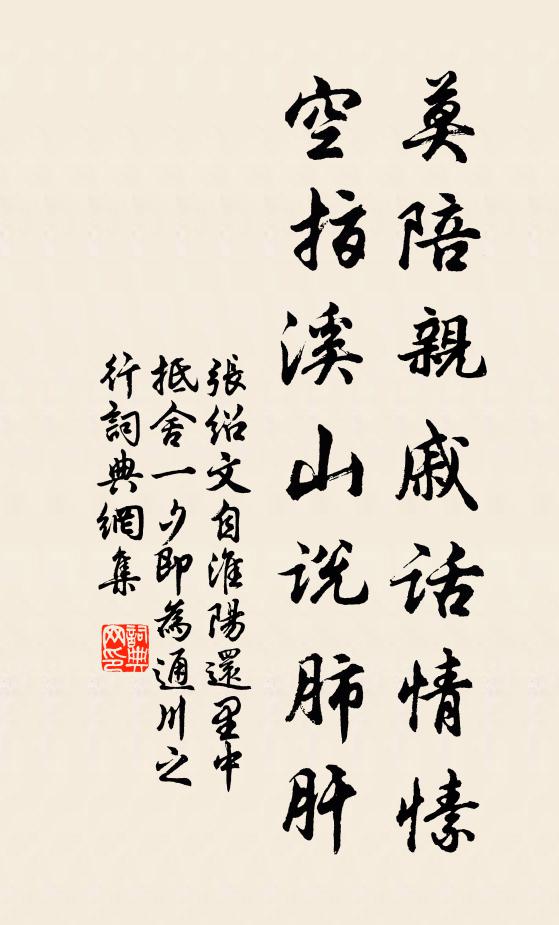 莫陪親戚話情愫
空指溪山説肺肝
張紹文自淮陽還里中
抵舍一夕即為通川之
行詞典網集
詞典網印